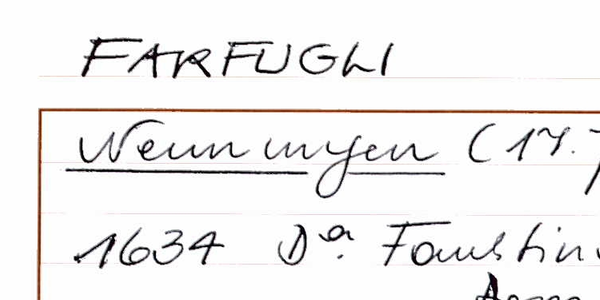 FARFUGLI
Nennungen (17.
1634 Dª. Faustin